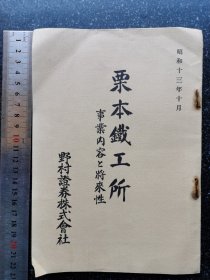 昭和十三年十月
栗本鐵工所
事業內容と將來性
野村證券株式會社